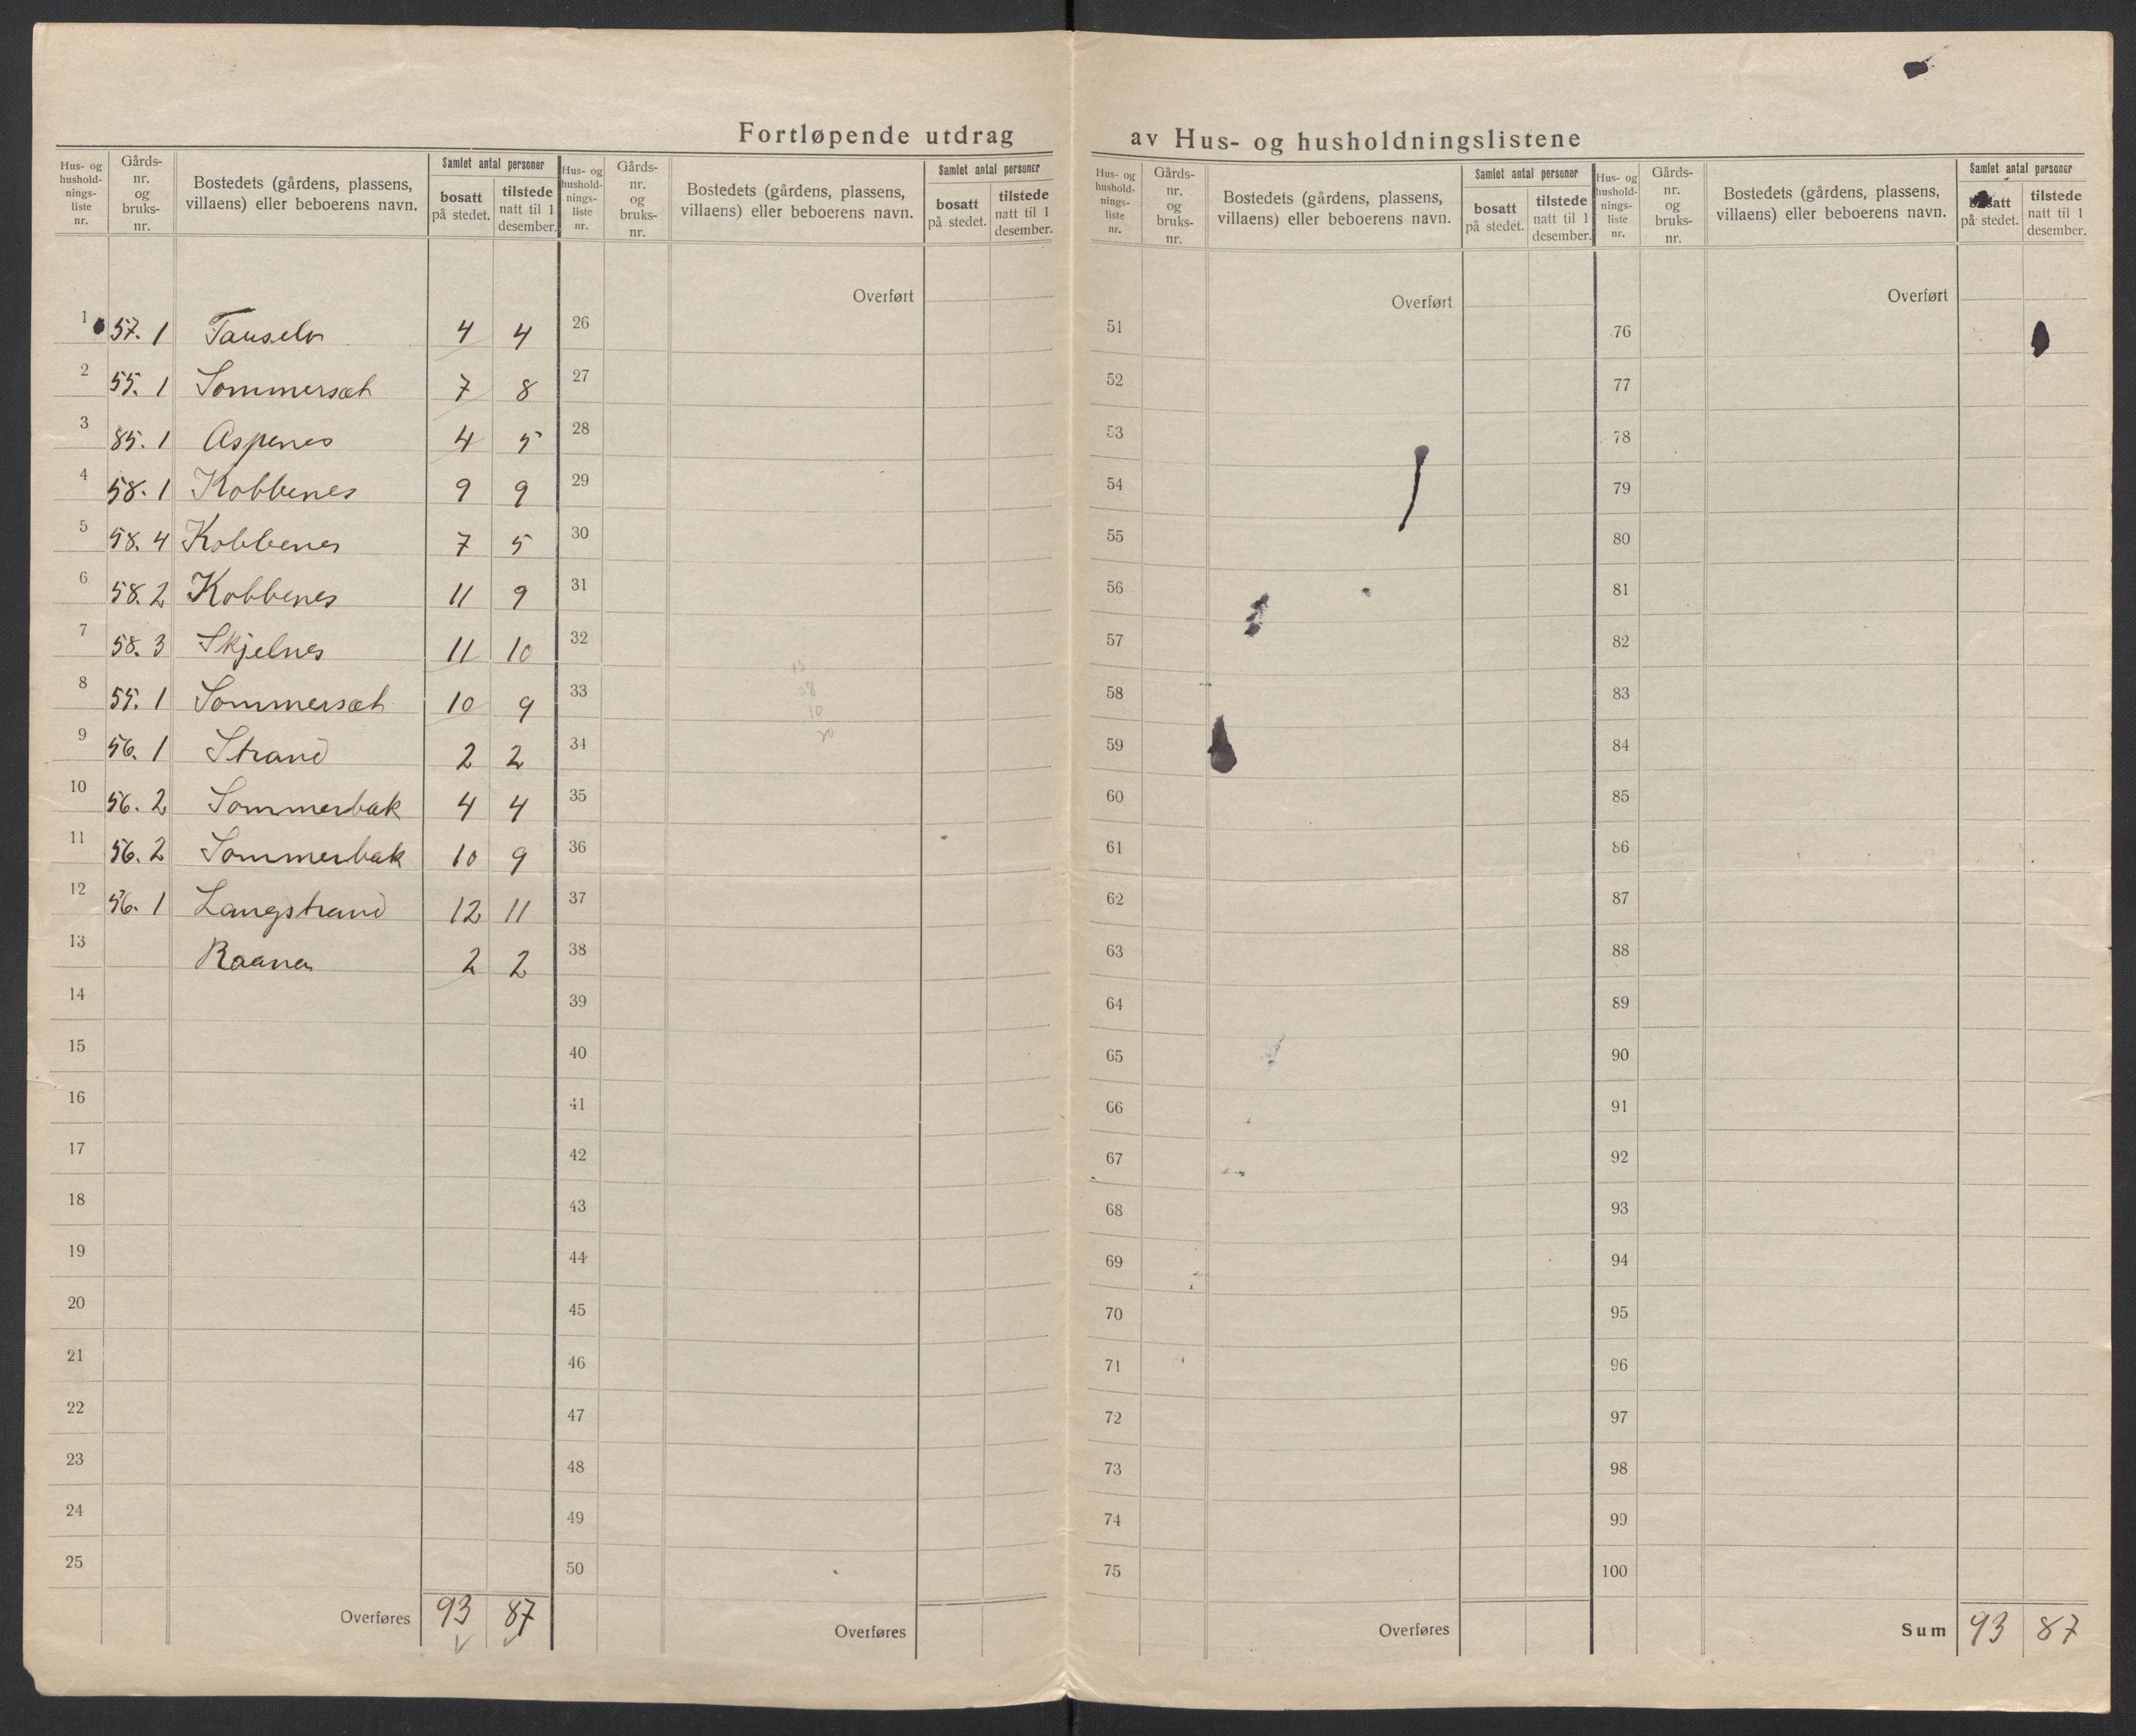 Fortløpende utdrag av Hus- og husholdningslistene
Hus- og hushold- nings- liste nr.
Gårds- nr. og bruks- nr.
Bostedets (gårdens, plassens, villaens) eller beboerens navn.
Samlet antal personer
bosatt på stedet.
tilstede natt til 1 desember.
Hus- og hushold- nings- liste nr.
Gårds- nr. og bruks- nr.
Bostedets (gårdens, plassens, villaens) eller beboerens navn.
Samlet antal personer
bosatt på stedet.
tilstede natt til 1 desember.
Hus- og hushold- nings- liste nr.
Gårds- nr. og bruks- nr.
Bostedets (gårdens, plassens, villaens) eller beboerens navn.
Samlet antal personer
bosatt på stedet.
tilstede natt til 1 desember.
Hus- og hushold- nings- liste nr.
Gårds- nr. og bruks- nr.
Bostedets (gårdens, plassens, villaens) eller beboerens navn.
Samlet antal personer
bosatt på stedet.
tilstede natt til 1 desember.
Overført Overført Overført
1 57. 1 4 4 26 51 76
2 55. 1 Sommersæt 7 8 27 52 77
3 85. 1 Aspenes 4 5 28 53 78
4 58. 1 Kobbenes 9 9 29 54 79
5 58. 4 Kobbenes 7 5 30 55 80
6 58. 2 Kobbenes 11 9 31 56 81
7 58. 3 Skjelnes 11 10 32 57 82
8 55. 1 Sommersæt 10 9 33 58 83
9 56. 1 Strand 2 2 34 59 84
10 56. 2 Sommerbak 4 4 35 60 85
11 56. 2 Sommerbak 10 9 36 61 86
12 56. 1 Langstrand 12 11 37 62 87
13 Raanes 2 2 38 63 88
14 39 64 89
15 40 65 90
16 41 66 91
17 42 67 92
18 43 68 93
19 44 69 94
20 45 70 95
21 46 71 96
22 47 72 97
23 48 73 98
24 49 74 99
25 50 75 100
Overføres 93 87 Overføres Overføres Sum 93 87